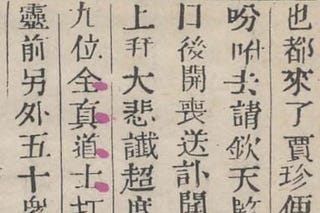 也都來了賈珍便
吩咐去請欽天
日後開喪送訃聞
上拜大悲讖超度
九位全真道士打
靈前另外五十眾